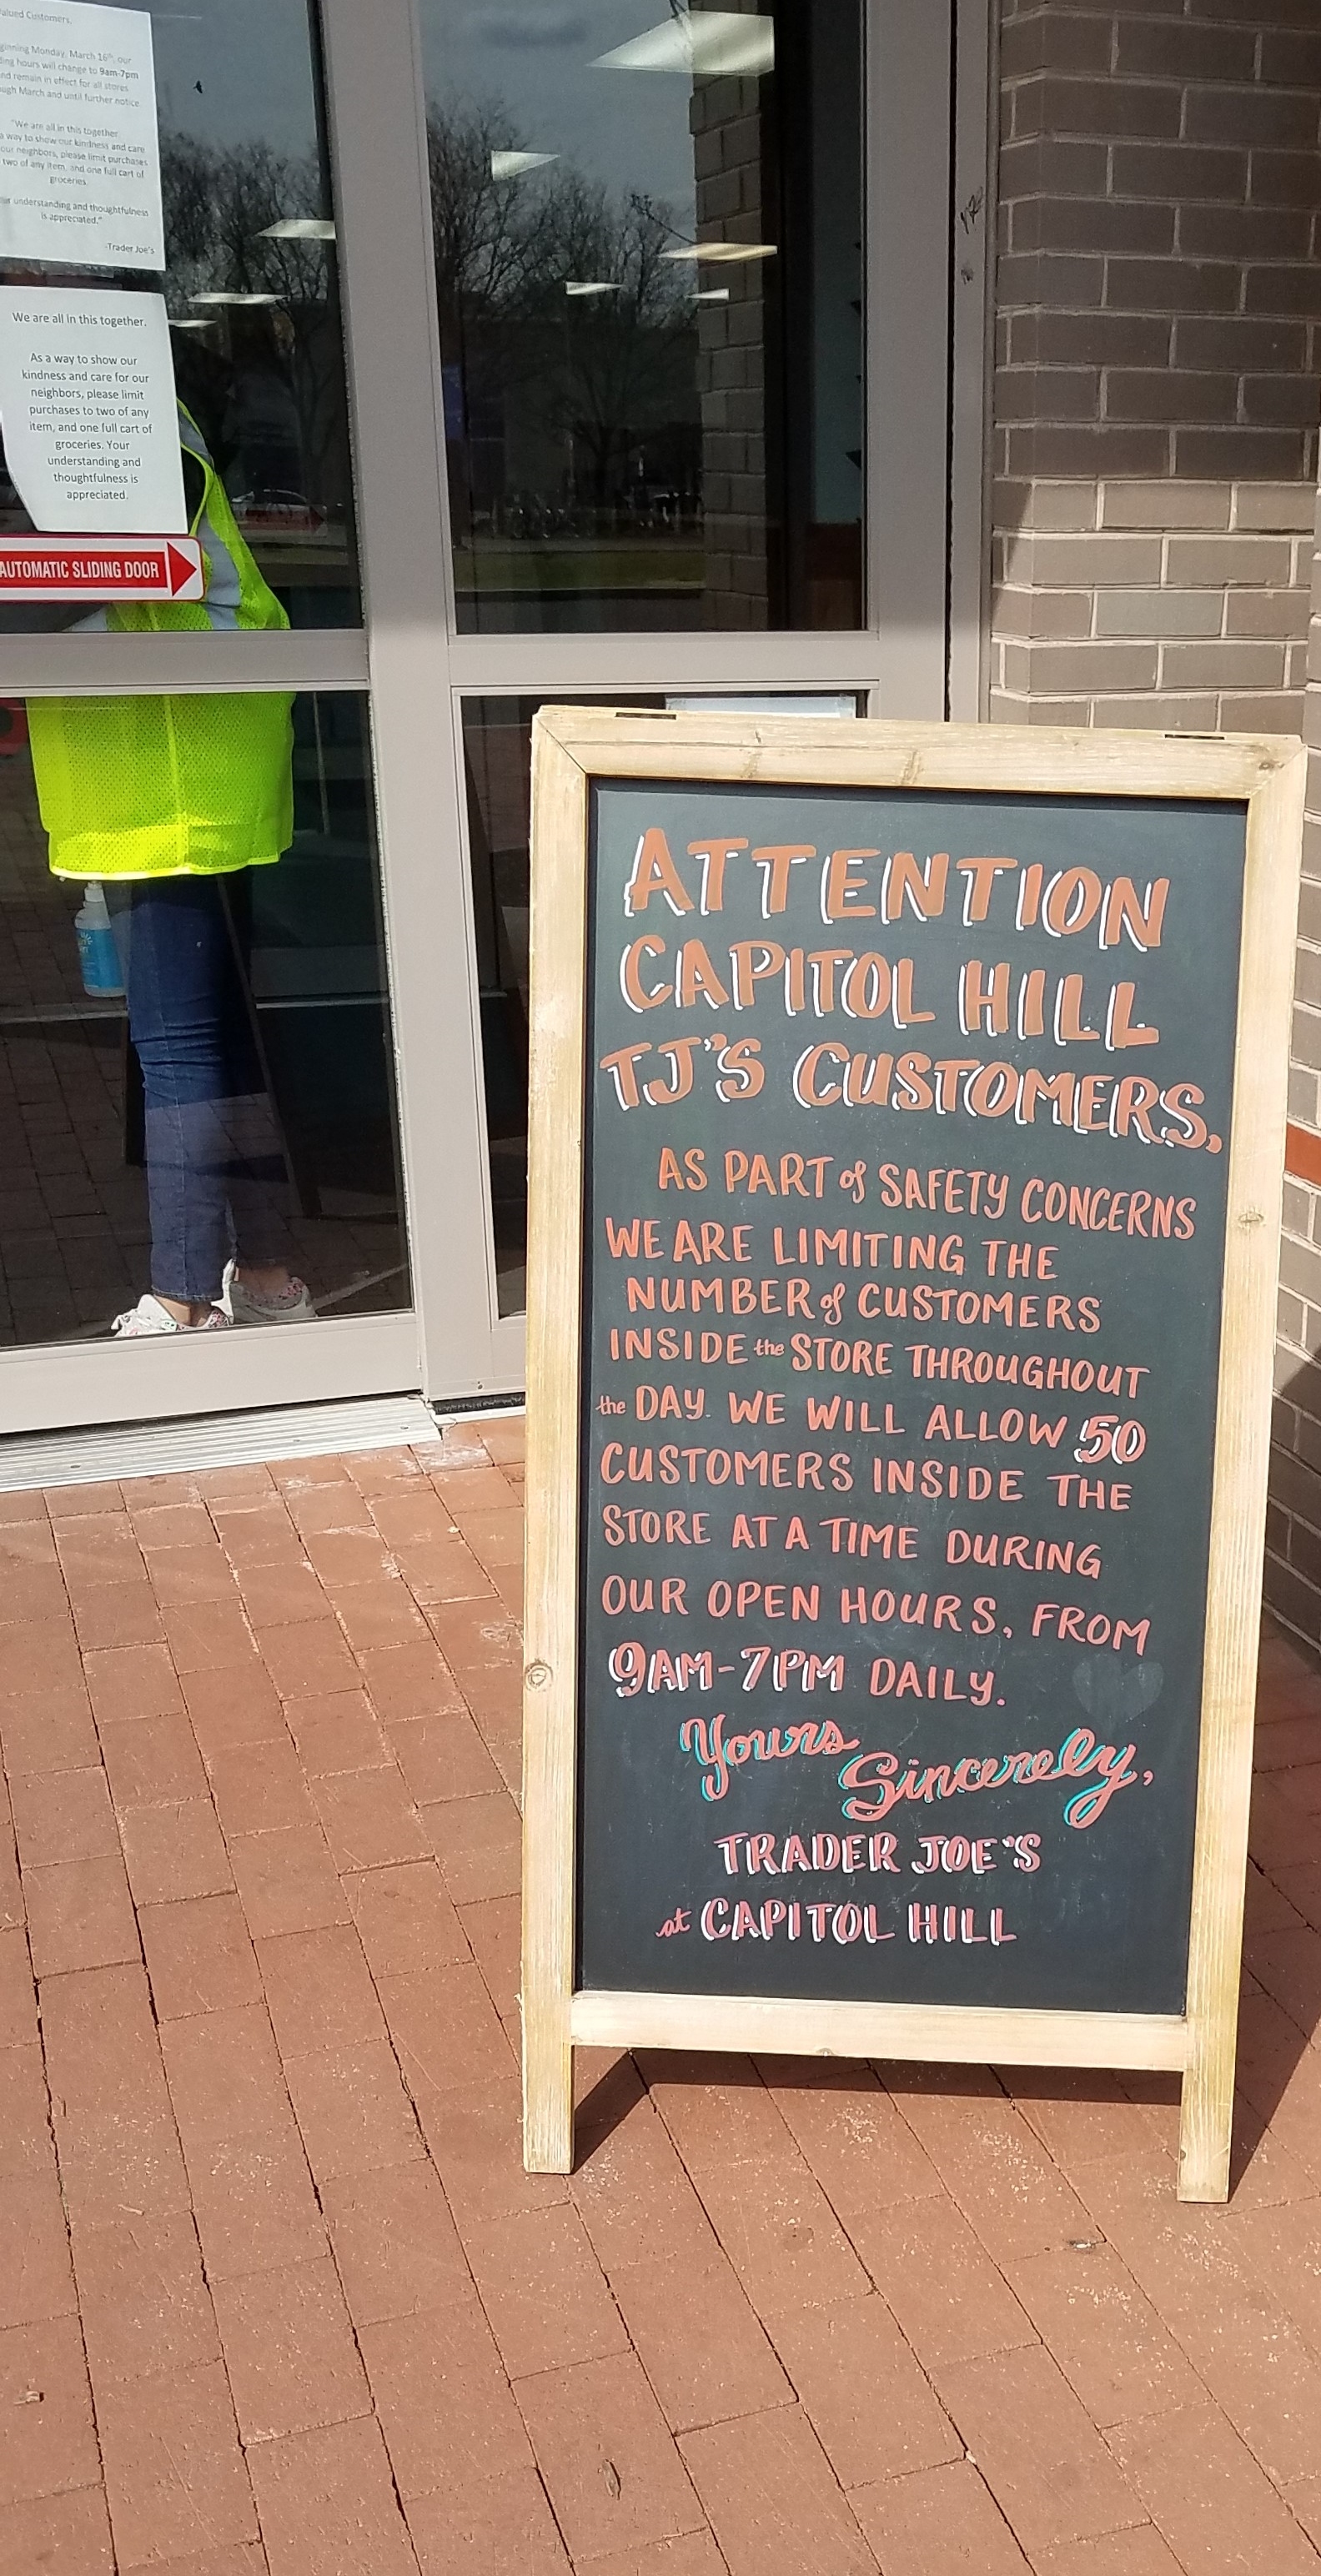 Valued Customers,
Monday, March 16th, our
hours will change to 9am-7pm
and remain in effect for all stores
through March and until further notice.
"We are all in this together.
a way to show our kindness and care
our neighbors, please limit purchases
two of any item, and one full cart of
groceries.
understanding and thoughtfulness
is appreciated."
-Trader Joe's
We are all in this together.
As a way to show our
kindness and care for our
neighbors, please limit
purchases to two of any
item, and one full cart of
groceries. Your
understanding and
thoughtfulness is
appreciated.
AUTOMATIC SLIDING DOOR
ATTENTION
CAPITOL HILL
TJ'S CUSTOMERS,
AS PART of SAFETY CONCERNS
WE ARE LIMITING THE
NUMBER of CUSTOMERS
INSIDE the STORE THROUGHOUT
the DAY. WE WILL ALLOW 50
CUSTOMERS INSIDE THE
STORE AT A TIME DURING
OUR OPEN HOURS, FROM
9AM-7PM DAILY.
Yours
Sincerely,
TRADER JOE'S
at CAPITOL HILL